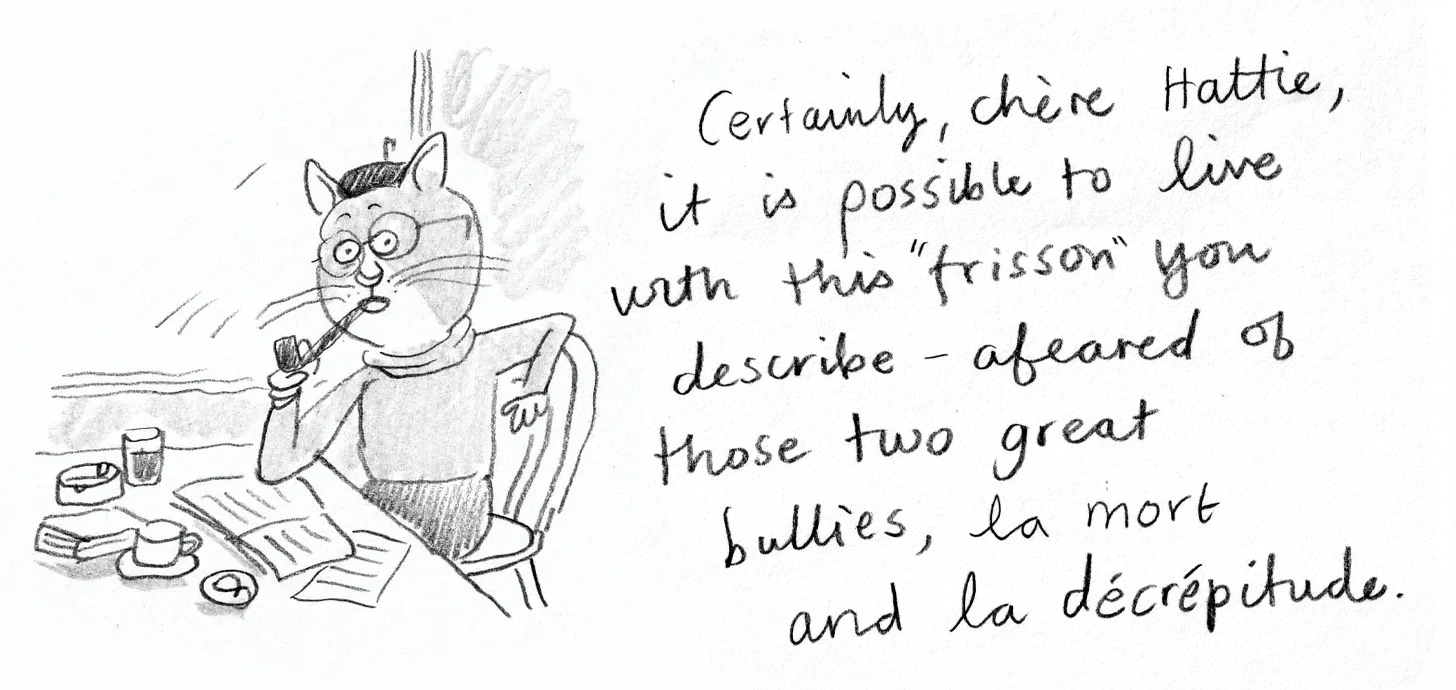 Certainly, chère Hattie,
it is possible to live
with this "frisson" you
describe – afeared of
those two great
bullies, la mort
and la décrépitude.